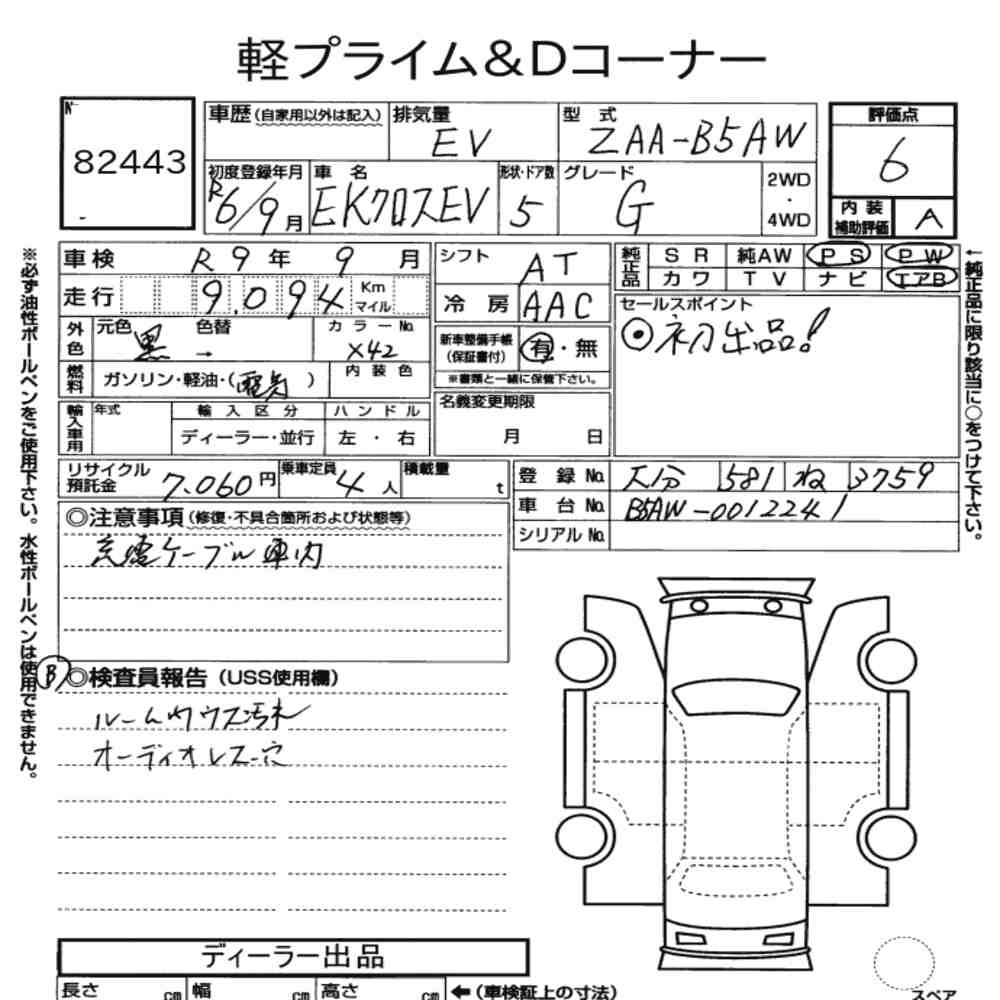 軽プライム&Dコーナー
No
82443
車歴(自家用以外は記入)
排気量
EV
型式
ZAA-B5AW
評価点
6
内装補助評価
A
初度登録年月
R6/9月
車名
EKクロスEV
形状・ドア数
5
グレード
G
2WD
・
4WD
車検 R9年 9月
走行 9.094 Km マイル
シフト AT
冷房 AAC
純正品 SR 純AW PS PW
カワ TV ナビ エアB
外色 元色 黒 色替 → カラーNo. X42
燃料 ガソリン・軽油・(電気) 内装色
新車整備手帳(保証書付) 有・無
※書類と一緒に保管下さい。
セールスポイント
◎初出品!
輸入車用 年式 輸入区分 ハンドル
ディーラー・並行 左・右
名義変更期限
月 日
リサイクル預託金 7.060円 乗車定員 4人 積載量 t
登録No. 大分 581 ね 3759
車台No. B5AW-0012241
シリアルNo.
◎注意事項(修復・不具合箇所および状態等)
充電ケーブル車内
B
◎検査員報告(USS使用欄)
ルームハウス汚れ
オーディオレス・穴
※必ず油性ボールペンをご使用下さい。水性ボールペンは使用できません。
←純正品に限り該当に○をつけて下さい。
ディーラー出品
長さ cm 幅 cm 高さ cm ←(車検証上の寸法)
スペア